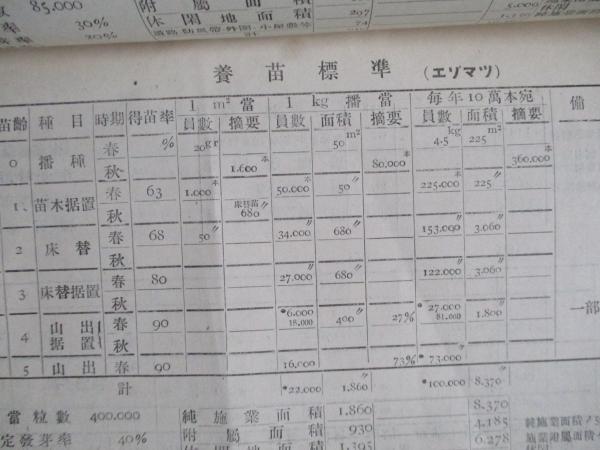 數 85.000
率 30%
率 20%
附屬面積
休閑地面積
297
74
計
5.000
養苗標準 (エゾマツ)
苗齡 種目 時期 得苗率 1m²當 1kg播當 每年10萬本宛 備
員數 摘要 員數 面積 摘要 員數 面積 摘要
0 播種 春 % 20gr 50m² 4.5kg 225m²
秋 1.600本 80.000本 360.000本
1 苗木据置 春 63 1.000本 50.000本 50〃 225.000本 225〃
秋 床替苗 680〃
2 床替 春 68 50〃 34.000〃 680〃 153.000〃 3.060〃
秋
3 床替据置 春 80 27.000〃 680〃 122.000〃 3.060〃
秋
4 山出 据置 春 90 *6.000 18.000 400〃 27% *27.000 81.000 1.800〃 一部
秋
5 山出 春 90 16,000 73% *73.000
計 *22.000〃 1,860〃 *100.000〃 8.370〃
當粒數 400.000 純施業面積 1,860 8.370 純施業面積
定發芽率 40% 附屬面積 930 4.185 施業附屬面積
休閑地面積 1,395 6.278